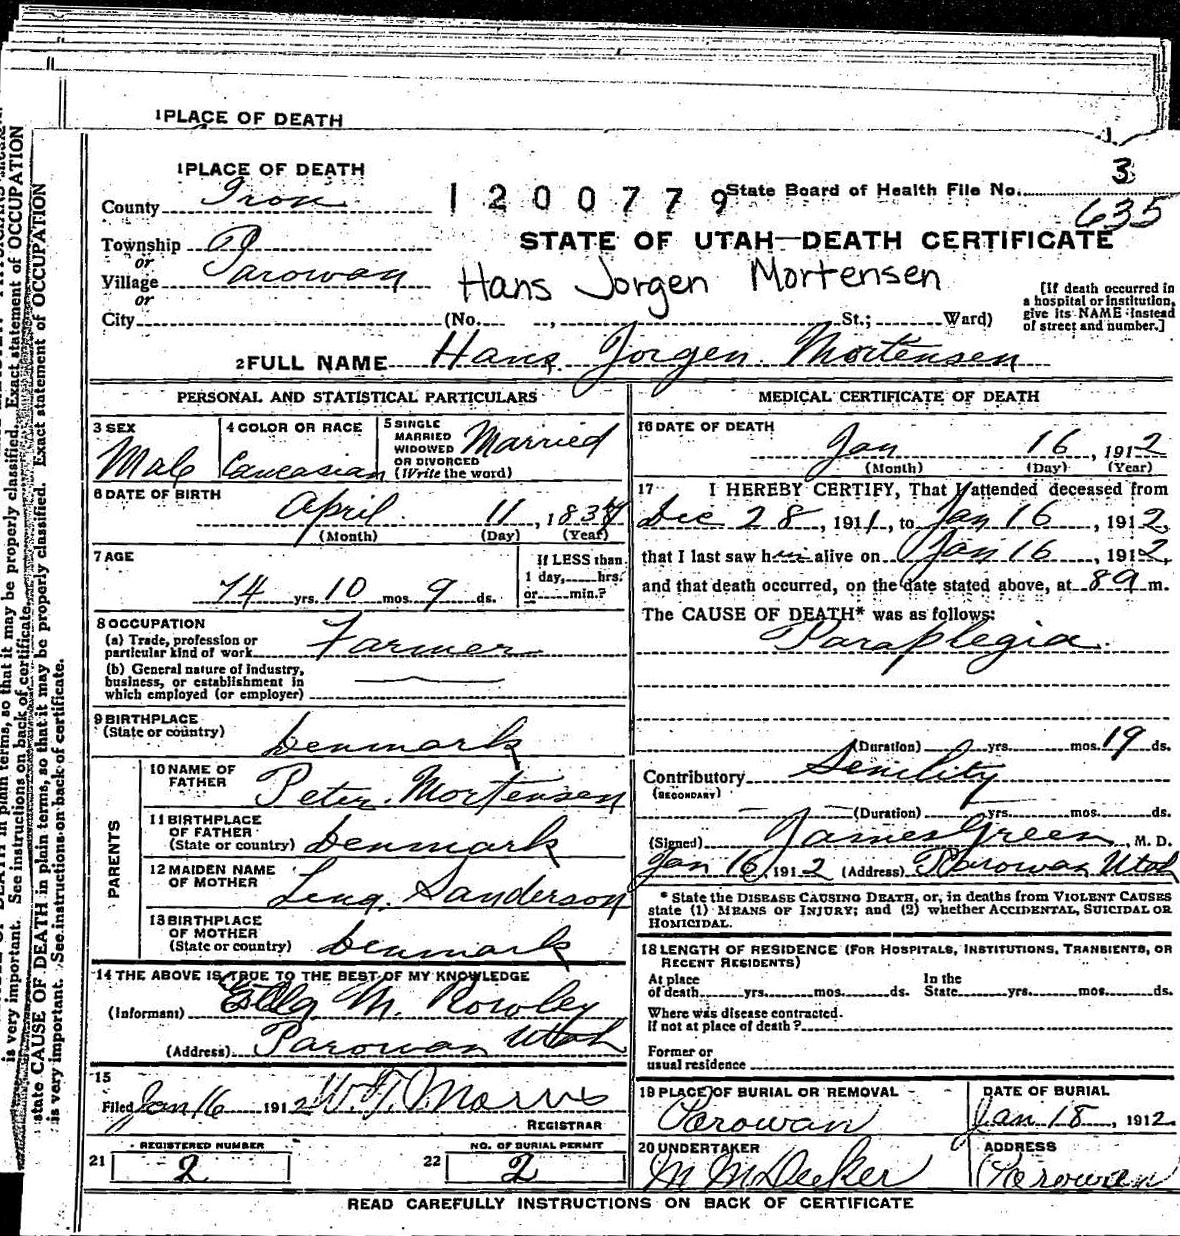 1 PLACE OF DEATH
1 PLACE OF DEATH
County Iron
1200779
State Board of Health File No. 3
635
Township P
or
Village Parowan
or
City (No. , St.; Ward)
STATE OF UTAH—DEATH CERTIFICATE
Hans Jorgen Mortensen
[If death occurred in
a hospital or institution,
give its NAME instead
of street and number.]
2 FULL NAME Hans Jorgen Mortensen
PERSONAL AND STATISTICAL PARTICULARS
3 SEX Male
4 COLOR OR RACE Caucasian
5 SINGLE
MARRIED
WIDOWED
OR DIVORCED
(Write the word) Married
6 DATE OF BIRTH
April 11, 183
(Month) (Day) (Year)
7 AGE
74 yrs. 10 mos. 9 ds.
If LESS than
1 day, hrs.
or min.?
8 OCCUPATION
(a) Trade, profession or
particular kind of work Farmer
(b) General nature of industry,
business, or establishment in
which employed (or employer)
9 BIRTHPLACE
(State or country) Denmark
PARENTS
10 NAME OF
FATHER Peter Mortensen
11 BIRTHPLACE
OF FATHER
(State or country) Denmark
12 MAIDEN NAME
OF MOTHER Lena Sanderson
13 BIRTHPLACE
OF MOTHER
(State or country) Denmark
14 THE ABOVE IS TRUE TO THE BEST OF MY KNOWLEDGE
(Informant) M. Rowley
(Address) Parowan Utah
15
Filed Jan 16 1912 Morris
REGISTRAR
REGISTERED NUMBER
21 2
NO. OF BURIAL PERMIT
22 2
MEDICAL CERTIFICATE OF DEATH
16 DATE OF DEATH
Jan 16, 1912
(Month) (Day) (Year)
17 I HEREBY CERTIFY, That I attended deceased from
Dec 28, 1911, to Jan 16, 1912,
that I last saw him alive on Jan 16, 1912,
and that death occurred, on the date stated above, at 8 a m.
The CAUSE OF DEATH* was as follows:
Paraplegia
(Duration) yrs. mos. 19 ds.
Contributory Senility
(SECONDARY)
(Duration) yrs. mos. ds.
(Signed) James Green, M. D.
Jan 16, 1912 (Address) Parowan Utah
* State the DISEASE CAUSING DEATH, or, in deaths from VIOLENT CAUSES
state (1) MEANS OF INJURY; and (2) whether ACCIDENTAL, SUICIDAL OR
HOMICIDAL.
18 LENGTH OF RESIDENCE (FOR HOSPITALS, INSTITUTIONS, TRANSIENTS, OR
RECENT RESIDENTS)
At place In the
of death yrs. mos. ds. State yrs. mos. ds.
Where was disease contracted.
if not at place of death?
Former or
usual residence
19 PLACE OF BURIAL OR REMOVAL
Parowan
DATE OF BURIAL
Jan 18, 1912
20 UNDERTAKER
M M Decker
ADDRESS
Parowan
READ CAREFULLY INSTRUCTIONS ON BACK OF CERTIFICATE
in plain terms, so that it may be properly classified. Exact statement of OCCUPATION
is very important. See instructions on back of certificate.
state CAUSE OF DEATH in plain terms, so that it may be properly classified. Exact statement of OCCUPATION
is very important. See instructions on back of certificate.